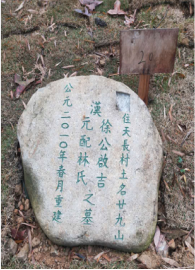 住天長村土名廿九山
漢
徐公啟吉
元配林氏
之墓
公元二〇一〇年春月重建